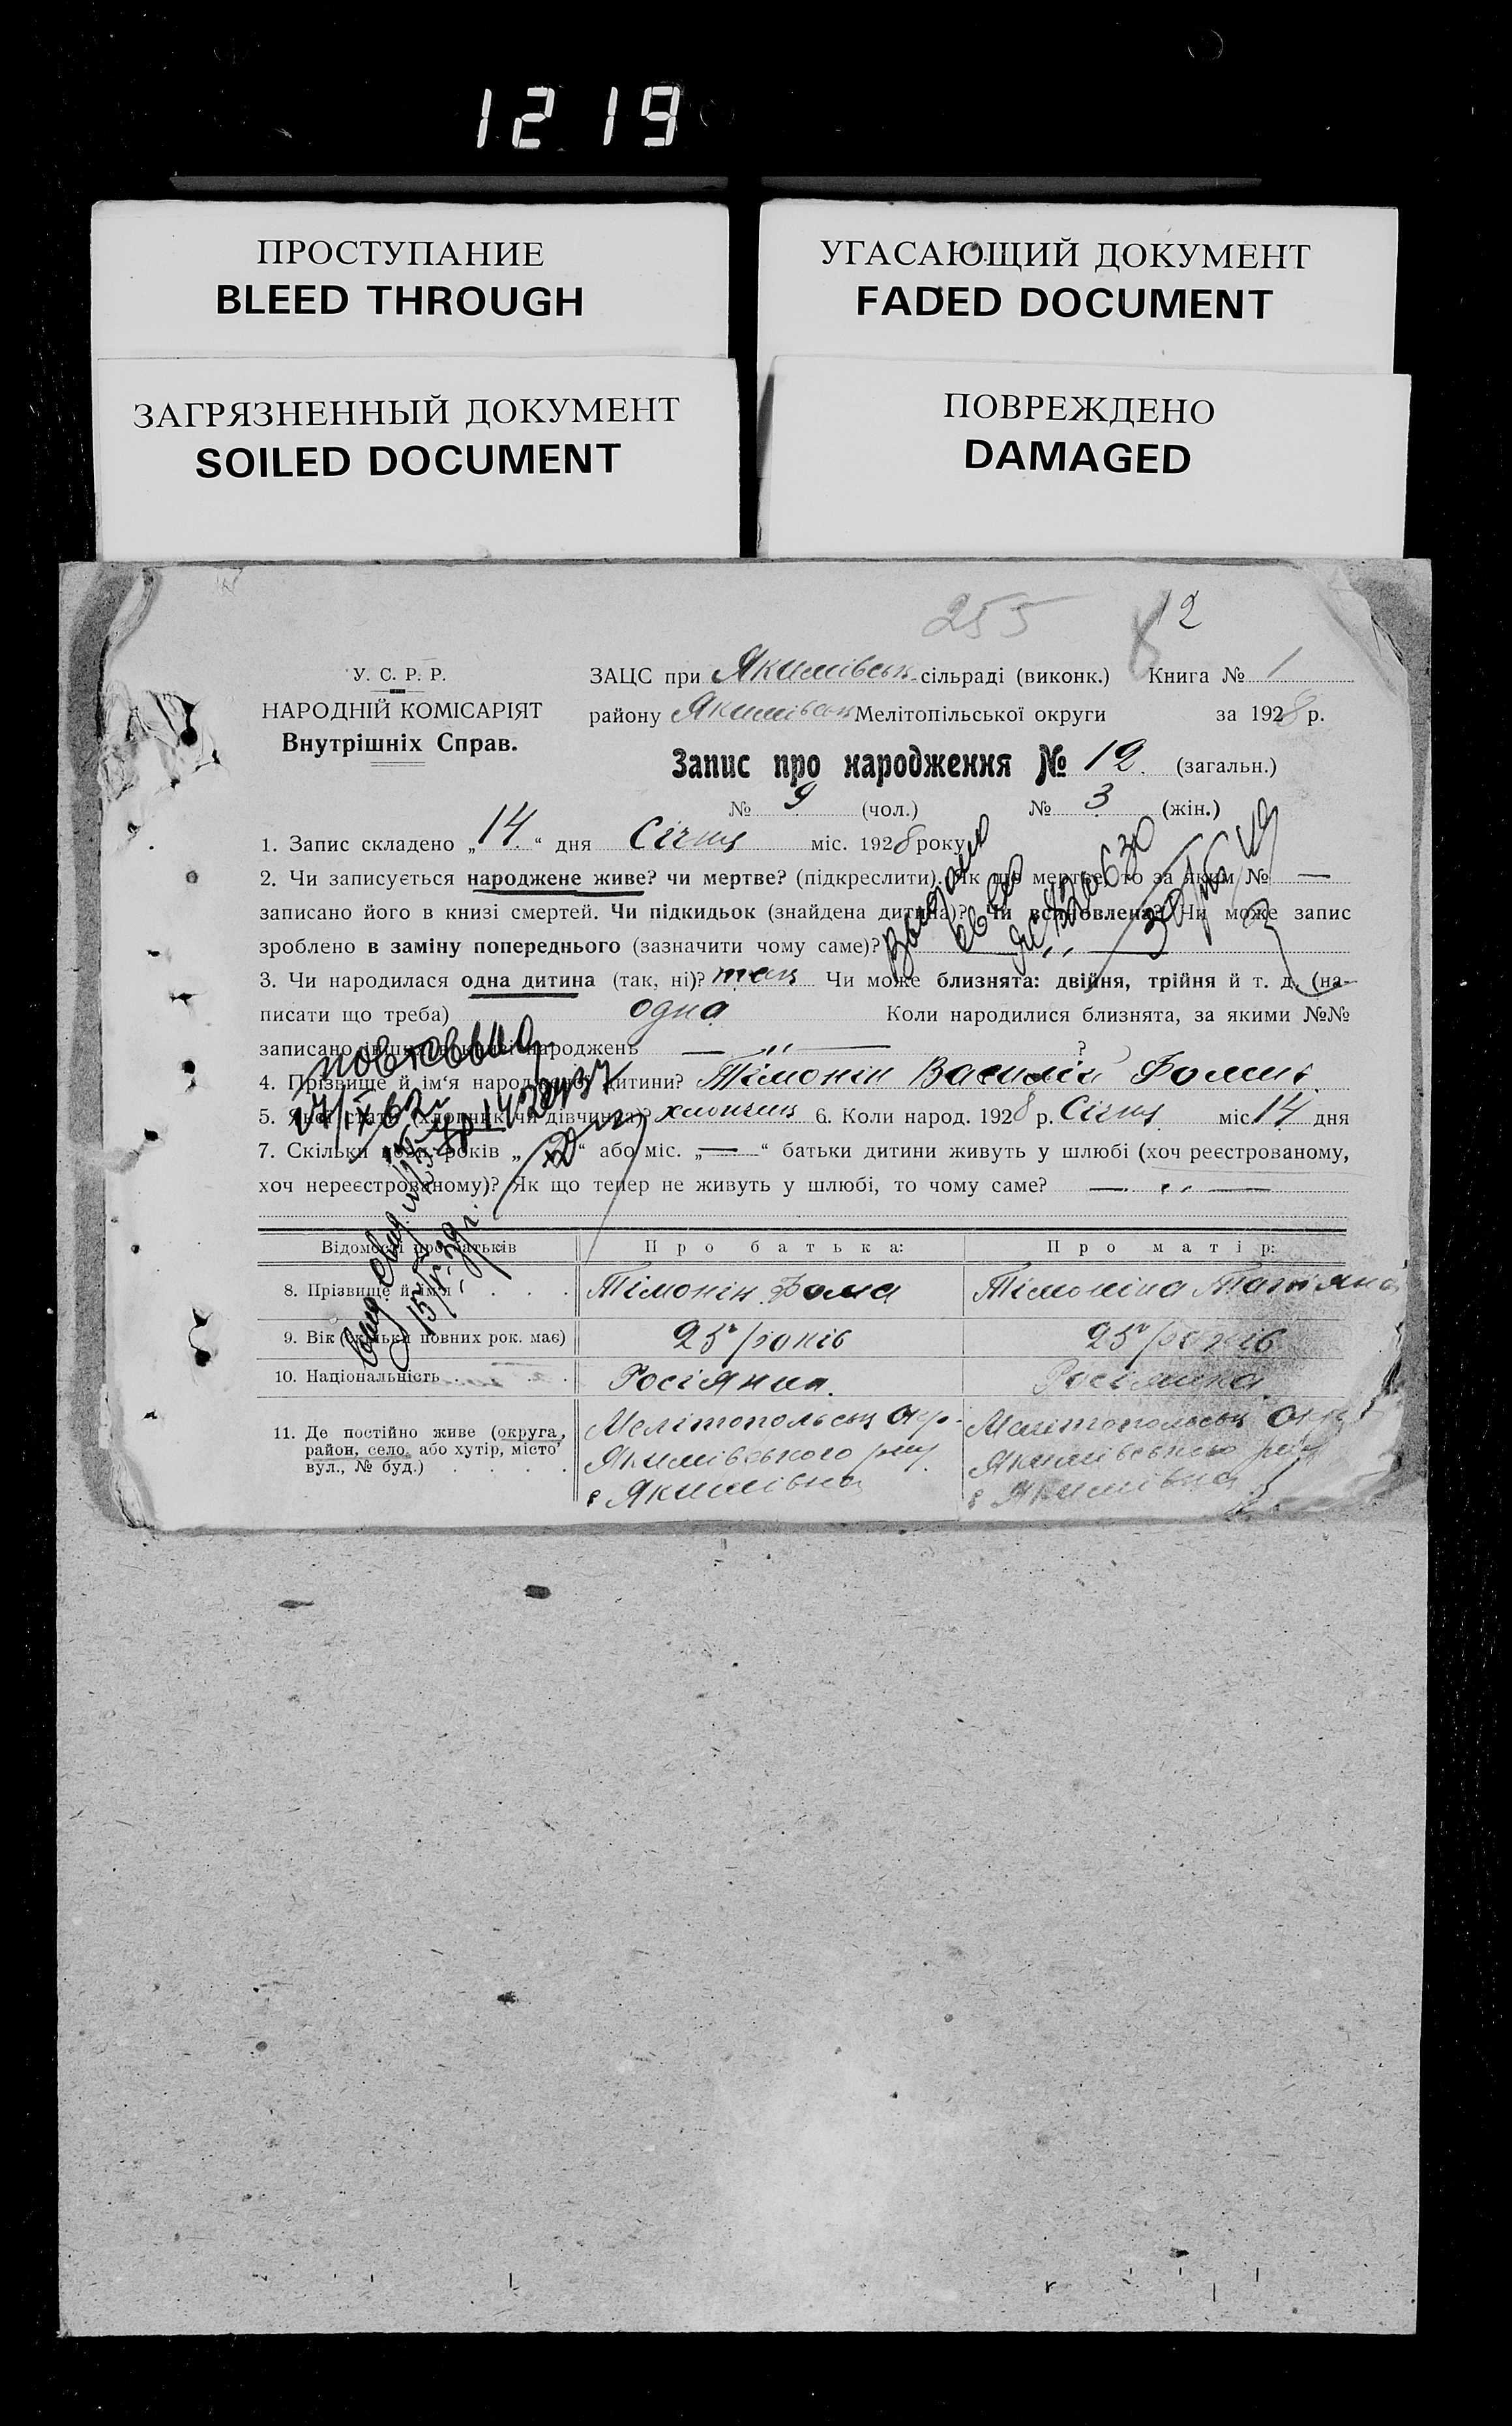 1219
ПРОСТУПАНИЕ
BLEED THROUGH
УГАСАЮЩИЙ ДОКУМЕНТ
FADED DOCUMENT
ЗАГРЯЗНЕННЫЙ ДОКУМЕНТ
SOILED DOCUMENT
ПОВРЕЖДЕНО
DAMAGED
255
12
У. С. Р. Р.
НАРОДНІЙ КОМІСАРІЯТ
Внутрішніх Справ.
ЗАЦС при Якимівськ. сільраді (виконк.) Книга № 1
району Якимівськ Мелітопільської округи за 1928 р.
Запис про народження № 12. (загальн.)
№ 9 (чол.) № 3 (жін.)
1. Запис складено „14“ дня Січня міс. 1928 року
2. Чи записується народжене живе? чи мертве? (підкреслити). Як що мертве, то за яким № —
записано його в книзі смертей. Чи підкидьок (знайдена дитина)? Чи встановлена? Чи може запис
зроблено в заміну попереднього (зазначити чому саме)? — „ —
3. Чи народилася одна дитина (так, ні)? так Чи може близнята: двійня, трійня й т. д. (на-
писати що треба) одна Коли народилися близнята, за якими №№
записано інших в книзі народжень — „ — ?
4. Прізвище й ім‘я народженої дитини? Тімонін Василій Фомич.
5. Якої статі (хлопчик чи дівчинка)? хлопчик 6. Коли народ. 1928 р. Січня міс. 14 дня
7. Скільки повн. років „2“ або міс. „—“ батьки дитини живуть у шлюбі (хоч реєстрованому,
хоч нереєстрованому)? Як що тепер не живуть у шлюбі, то чому саме? — „ —
повторный
17/IX 62 г.
Выдано
Відомості про батьків
Про батька:
Про матір:
8. Прізвище й ім‘я . . . .
Тімонін Фома
Тімоніна Татіяна
9. Вік (скільки повних рок. має)
25 років
25 років
10. Національність . . . .
Росіянин.
Росіянка.
11. Де постійно живе (округа,
район, село, або хутір, місто
вул., № буд.) . . . .
Мелітопольськ Окр.
Якимівського р-ну
с Якимівка
Мелітопольськ Окр
Якимівського р-ну
с Якимівка